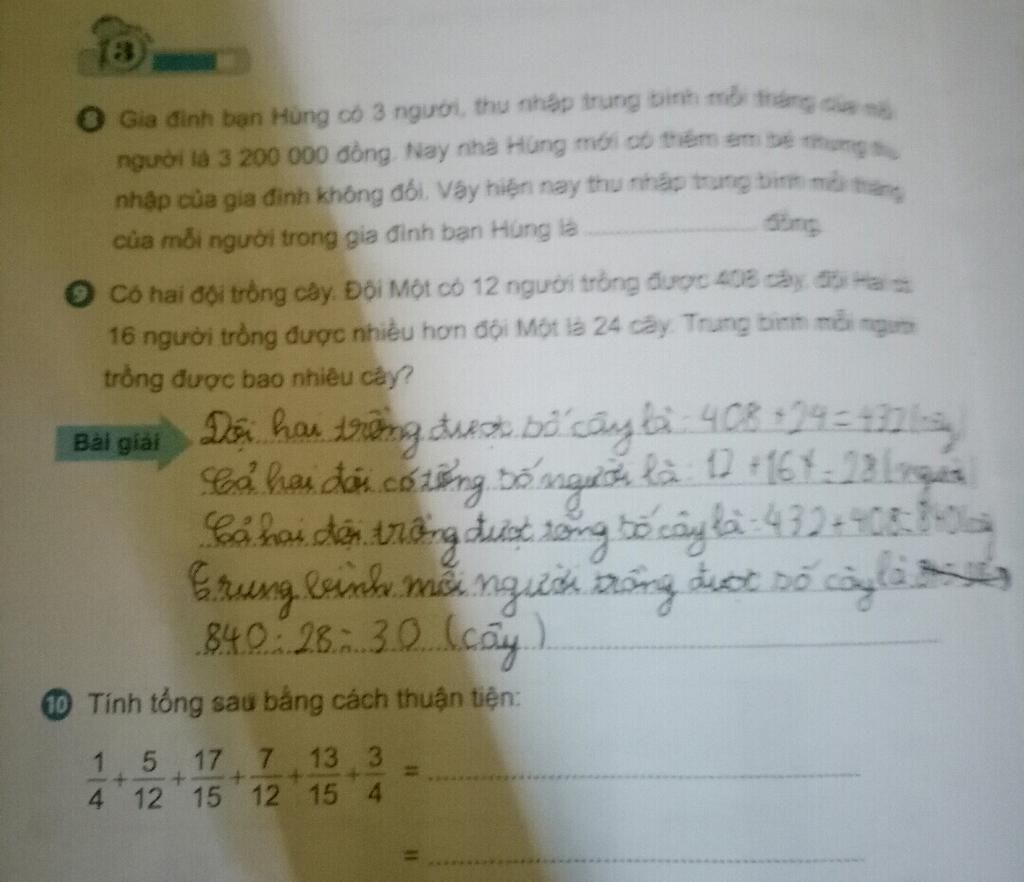 3
8 Gia đình bạn Hùng có 3 người, thu nhập trung bình mỗi tháng của mỗi
người là 3 200 000 đồng. Nay nhà Hùng mới có thêm em bé nhưng thu
nhập của gia đình không đổi. Vậy hiện nay thu nhập trung bình mỗi tháng
của mỗi người trong gia đình bạn Hùng là ........................ đồng.
9 Có hai đội trồng cây. Đội Một có 12 người trồng được 408 cây, đội Hai có
16 người trồng được nhiều hơn đội Một là 24 cây. Trung bình mỗi người
trồng được bao nhiêu cây?
Bài giải
Đội hai trồng được số cây là: 408 + 24 = 432 (cây)
Cả hai đội có tổng số người là: 12 + 16 = 28 (người)
Cả hai đội trồng được tổng số cây là: 432 + 408 = 840 (cây)
Trung bình mỗi người trồng được số cây là
840 : 28 = 30 (cây)
10 Tính tổng sau bằng cách thuận tiện:
1/4 + 5/12 + 17/15 + 7/12 + 13/15 + 3/4 = ........................
= ........................